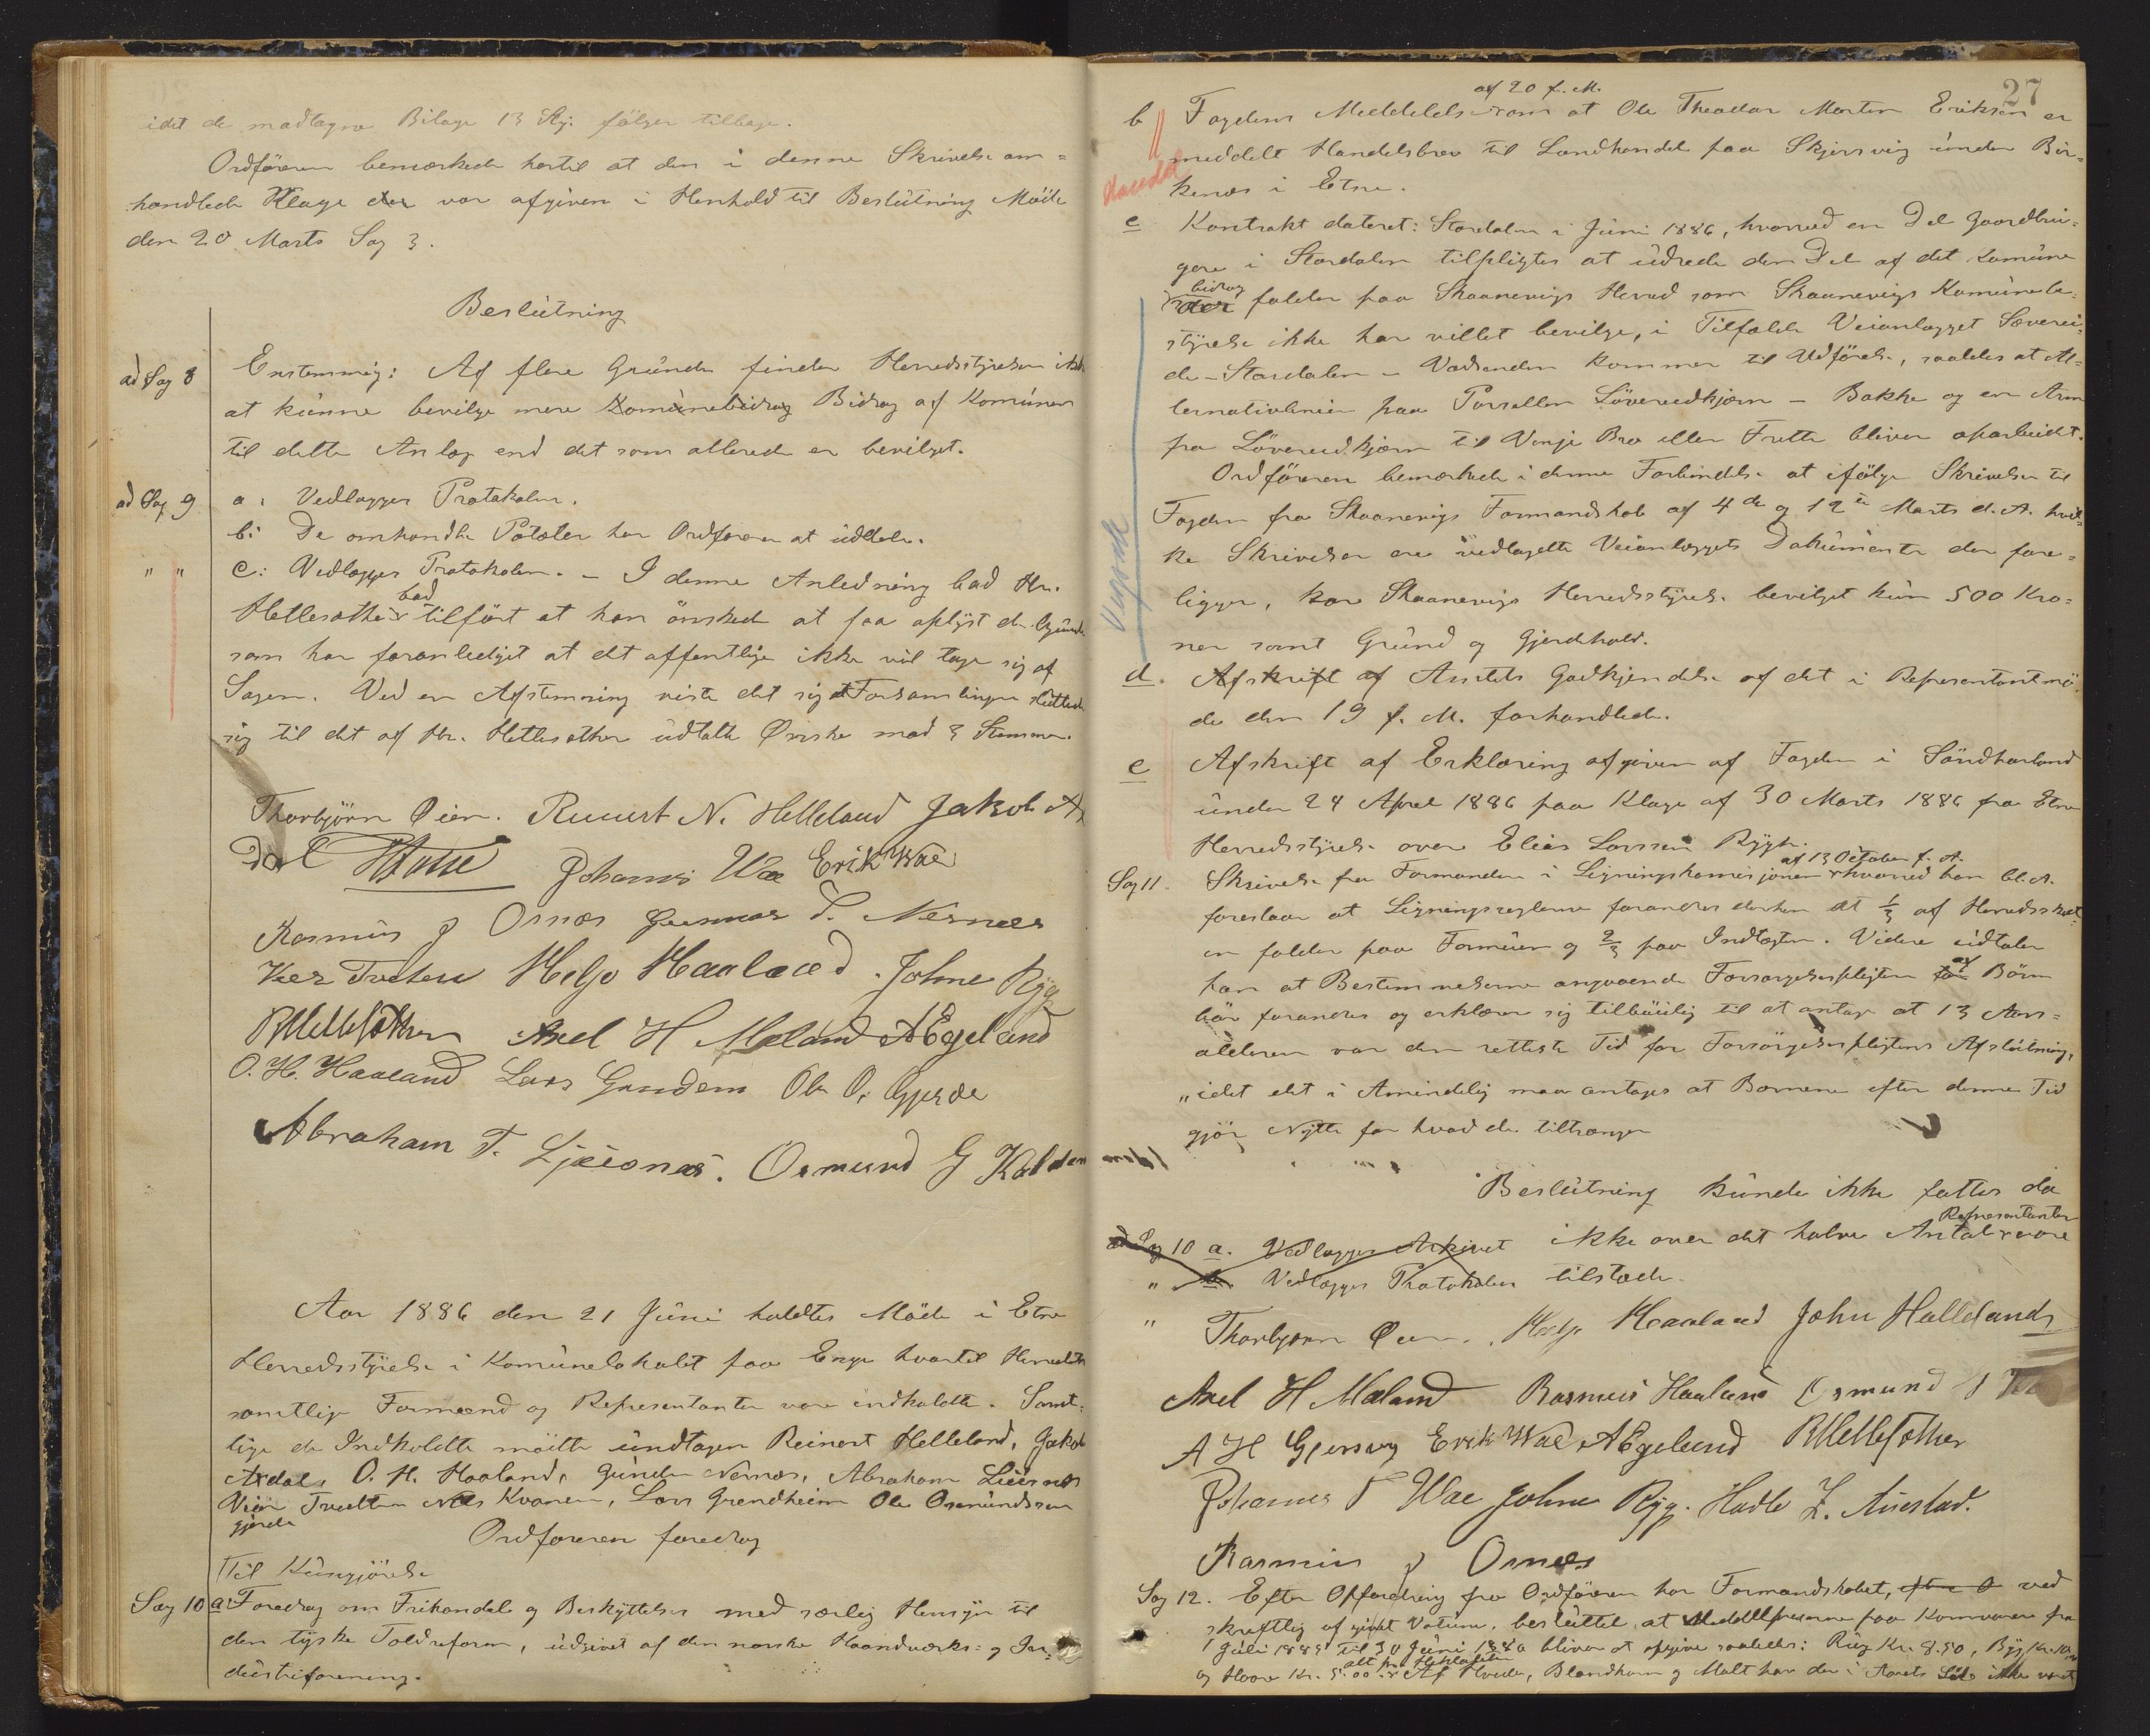 idet de modtagne Bilage 13 Stg. fölger tilbage.
Ordföreren bemærkede hertil at den i denne Skrivelse om=
handlede Klage var afgiven i Henhold til Beslutning Möde
den 20 Marts Sag 3.
Beslutning
ad Sag 8 Enstemmig: Af flere Grunde finder Herredsstyrelsen ikke
at kunne bevilge mere Komunebidrag Bidrag af Komunen
til dette Anlæg end det som allerede er bevilget.
ad Sag 9 a: Vedlægges Protokolen.
b: De omhandlede Poteter har Ordföreren at uddele.
" " c: Vedlægges Protokolen. – I denne Anledning bad Hr.
bad
Hellesøther tilfört at han önskede at faa oplyst de Grunde
som har foranlediget at det offentlige ikke vil tage sig af
Sagen. Ved en Afstemning viste det sig at Forsamlingen sluttede
sig til det af Hr. Hetlesæther udtalte Ønske mod 3 Stemmer.
Thorbjörn Øien. Reinert N. Helleland Jakob A
Dal Johannes Wae Erik Wae
Rasmus J Osnes Gunnar T. Nernæs
Tveten Helje Haaland. Johne Ryg
R Hetlesæther Axel H Mæland A Egeland
O. H. Haaland Lars Grindem Ole O. Gjerde
Abraham T. Ljeisnæs. Osmund G Kalden
Aar 1886 den 21 Juni holdtes Möde i Etne
Herredsstyrelse i Komunelokalet paa Enge hvortil Herredets
samtlige Formænd og Representanter vare indkaldte. Samt=
lige de Indkaldte mödte undtagen Reinert Helleland, Jakob
Axdal, O. H. Haaland, Gunder Nernæs, Abraham Leisnæs
Vier Tveten Nils Kvamen, Lars Grendheim Ole Osmundsen
gjerde
Ordföreren foredrog
Til Kungjörelse
Sag 10 a: Foredrag om Frihandel og Beskyttelse med særlig Hensyn til
den tyske Toldreform, udgivet af den norske Haandværks= og In=
dustriforening.
27
af 20 f. M.
b Fogdens Meddelelse om at Ole Theodor Martin Eriksen er
meddelt Handelsbrev til Landhandel paa Skjersvig under Bir=
kenes i Etne.
c Kontrakt dateret: Stordalen i Juni 1886, hvorved en Del Gaardbru=
gere i Stordalen tilpligtes at udrede den Del af det Komune
bidrag
der falder paa Skaanevigs Herred som Skaanevigs Komunebe=
styrelse ikke har villet bevilge, i Tilfælde Veianlægget Sæverei=
de – Stordalen – Vadsenden kommer til Udförelse, saaledes at Al=
ternativlinien paa Parsellen Lövereidkjærn – Bakke og en Arm
fra Lövereidkjærn til Vinje Bro eller Frette bliver oparbeidet.
Ordföreren bemærkede i denne Forbindelse at ifölge Skrivelse til
Fogden fra Skaanevigs Formandskab af 4de og 12te Marts d. A. hvil=
ke Skrivelser ere vedlagte Veianlæggets Dokumenter der fore=
ligger, har Skaanevigs Herredsstyrelse bevilget kun 500 Kro=
ner samt Grund og Gjerdehold.
d. Afskrift af Amtets Godkjendelse af det i Representantmö=
de den 19 f. M. forhandlede.
e Afskrift af Erklæring afgiven af Fogden i Söndhorland
under 24 April 1886 paa Klage af 30 Marts 1886 fra Etne
Herredsstyrelse over Elias Larssen Rygh.
af 13 October f. A.
Sag 11. Skrivelse fra Formanden i Ligningskomisjonen hvorved han bl. A.
foreslaar at Ligningsreglerne forandres derhen at 1/3 af Herredsskat=
en falder paa Formuen og 2/3 paa Indtægten. Videre udtaler
af
han at Bestemmelserne angaaende Forsørgelsespligten for Börn
bör forandres og erklærer sig tilböielig til at antage at 13 Aars=
alderen var den retteste Tid for Forsörgelsespligtens Afslutning,
"idet det i Amindelig maa antages at Börnene efter denne Tid
gjör Nytte for hvad de tiltrænger
Beslutning kunde ikke fattes da
Representanter
ad Sag 10 a. Vedlægges Arkivet ikke over det halve Antal vare
" b. Vedlægges Protokolen tilstede.
" Thorbjørn Øien. Helje Haaland John Hallelands
Axel H Mæland Rasmus Haaland Osmund
A H Gjersvig Erik Wae A Egeland R Hetlesæther
Johannes T Wae Johne Ryg. Hadle L. Austad.
Rasmus J Osnes
Sag 12. Efter Opfordring fra Ordföreren har Formandskabet, ved
skriftlig afgivet Votum, besluttet at Middelpriserne paa Kornvarer fra
1 Juli 1885 til 30 Juni 1886 bliver at opgive saaledes: Rug Kr. 8.50, Byg Kr.
alt pr Hektoliter
og Havre Kr. 5.00. Af Hvede, Blandkorn og Malt har der i Aarets Löb ikke været